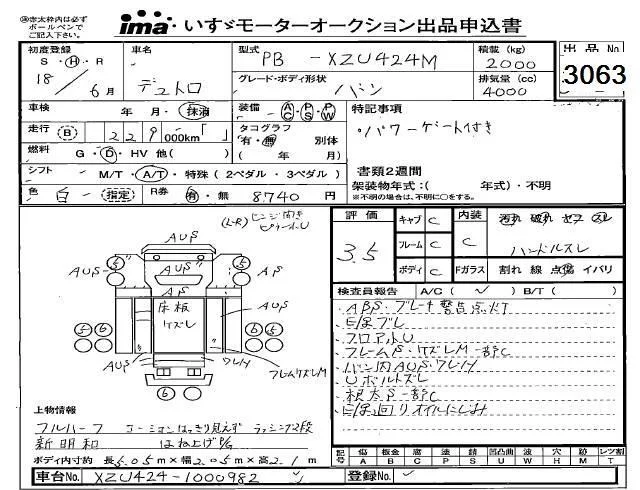 ㊟赤太枠内は必ず
ボールペンで
ご記入下さい。
ima いすゞモーターオークション出品申込書
初度登録 S・H・R 18年 6月
車名 デュトロ
型式 PB - XZU424M
積載 (kg) 2000
出品No. 3063
グレード・ボディ形状 バン
排気量 (cc) 4000
車検 年・月・抹消
装備 AC・PS・PW
特記事項
・パワーゲート付き
走行 (B) 229 000km「 」
タコグラフ 有・無 別体 ( 年 月)
燃料 G・D・HV 他( )
書類2週間
シフト M/T・A/T・特殊 (2ペダル・3ペダル)
架装物年式:( 年式)・不明
※不明の場合は、不明に○をする。
色 白 (指定) R券 有・無 8740円
(L-R)
評価 3.5
キャブ C
フレーム C
ボディ C
内装 C
汚れ 破れ ヤブ スレ
ハンドルスレ
Fガラス 割れ 線 点傷 イバリ
検査員報告 A/C( ✓ ) B/T( )
ABS・ブレーキ警告点灯
フロアトU
フレームS・ケズレM一部C
バン内AUS・ワレH
Uボルトズレ
根太S一部C
AUS
AUS
AUS
AS
AS
AUS
床板
ケズレ
AUS
ワレH
フレームケズレM
上物情報
フルハーフ コーションはっきり見えず ラッシング2段
新明和 はね上げP/G
ボディ内寸約 長5.05m×幅2.05m×高2.1m
記号 傷A 板金B 腐C 塗P 錆S 凹凸曲U 波W 穴H 要M レツ割T
車台No. XZU424-1000982
登録No.